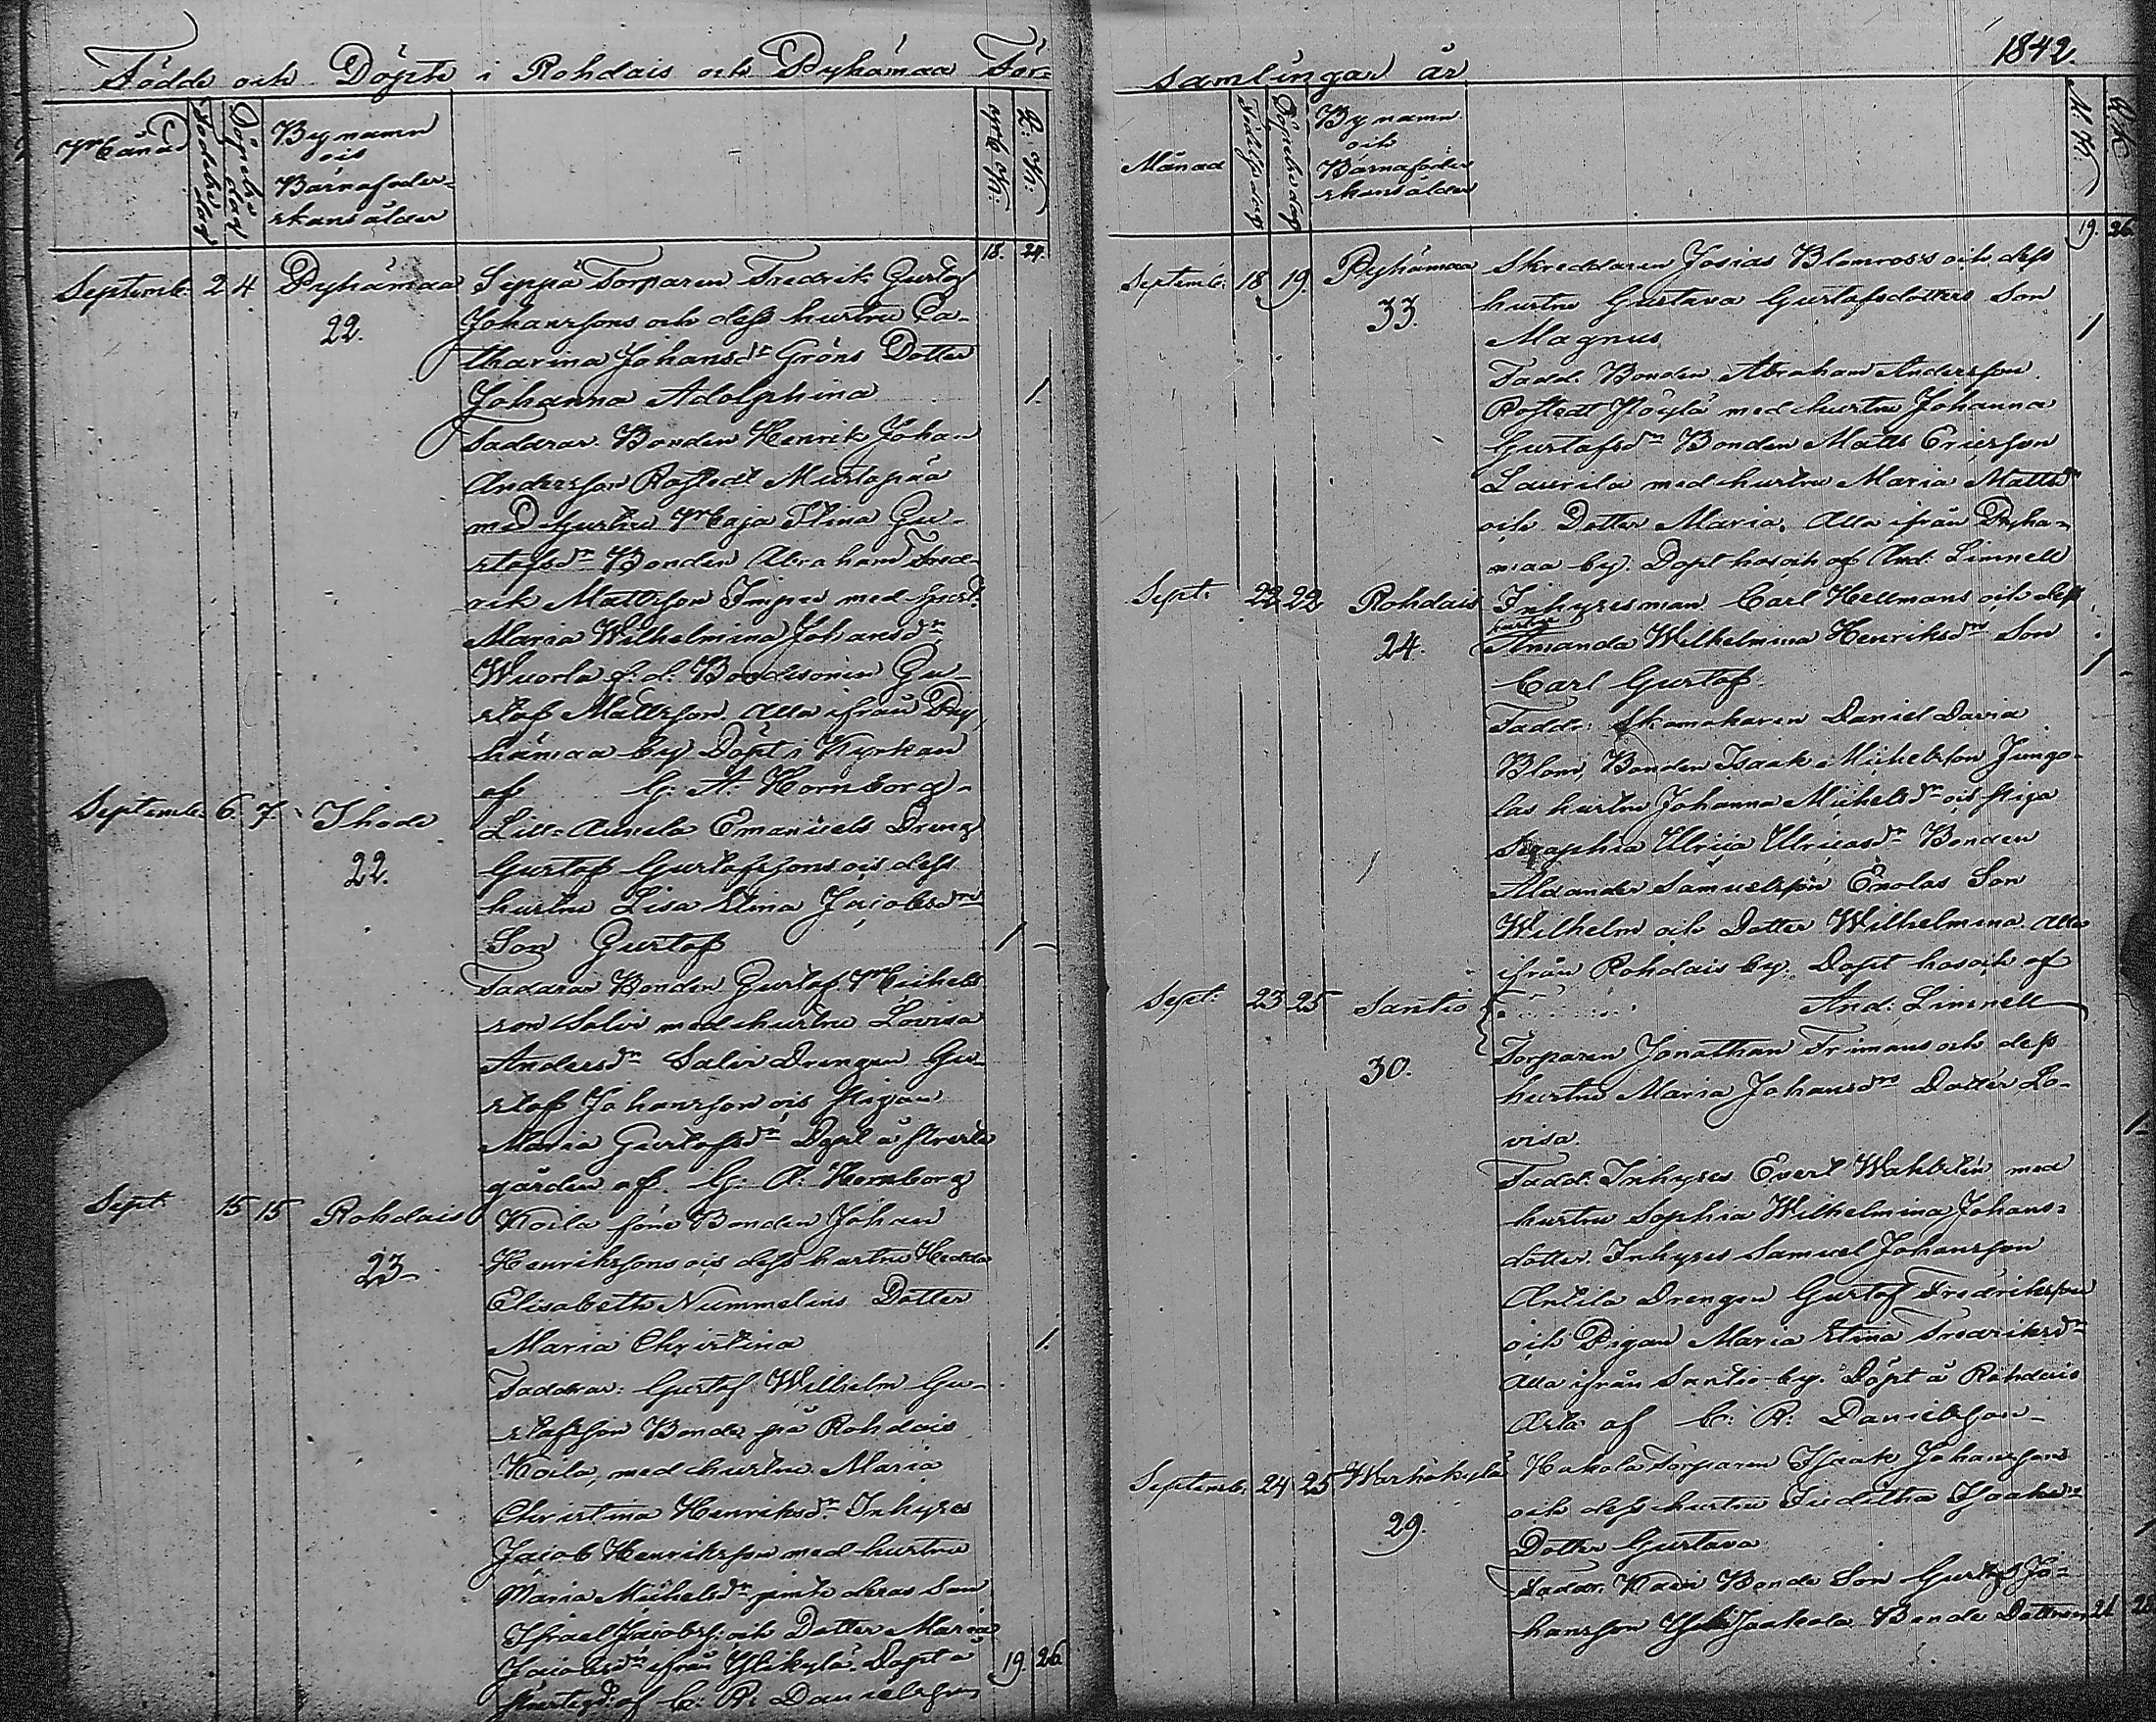 Födde och Döpte i Rohdais och Pyhämaa För=
Månad
Födelse dag
Döpelse dag
By namn
och
Barnaföder-
skans ålder
18. 24.
Septemb. 2 4 Pyhämaa Seppä Torparen Fredrik Gustaf
22. Johanssons och dess hustru Ca-
tharina Johansdr Gröns Dotter
Johanna Adolphina 1.
Faddrar. Bonden Henrik Johan
Andersson Rostedt Mustapää
med hustru Maja Stina Gu-
stafsdr Bonden Abraham Fred-
rik Mattsson Impis med hust.
Maria Wilhelmina Johansdr
Wuorla f. d. Bondesonen Gu-
staf Mattsson. Alla ifrån Py-
hämaa by Döpt i Kyrkan
af G: A: Hornborg
Septemb. 6. 7. Ihode Lill-Aunela Emanuels Dreng
22. Gustaf Gustafssons och dess
hustru Lisa Stina Jacobsdrs
Son Gustaf 1 -
Faddrar Bonden Gustaf Michels
son Salvi med hustru Lovisa
Andersdr Salvi Drengen Gu-
staf Johansson och Pigan
Maria Gustafsdr Döpt å Prest
gården af G: A: Hornborg
Sept. 15 15 Rohdais Koila före Bonden Johan
23 Henrikssons och dess hustru Hedda
Elisabeth Nummelins Dotter
Maria Christina 1.
Faddrar: Gustaf Wilhelm Gu-
stafsson Bonde på Rohdais
Koila, med hustru Maria
Christina Henriksdr. Inhyses
Jacob Henriksson med hustru
Maria Michelsdr samt deras Son
Israel Jacobss. och Dotter Maria
Jacobsdr ifrån Ylikylä. Döpt å 19. 26
af C: R: Danielsson
samlingar år 1842.
Månad
Födelse dag
Döpelse dag
By namn
och
Barnaföder
skans ålder
M. K.
Q. K.
19. 26
Septemb: 18 19. Pyhämaa Skreddaren Josias Blomross och dess
33. hustru Gustava Gustafsdotters Son
Magnus 1
Fadd. Bonden Abraham Andersson
Rostedt Höylä med hustru Johanna
Gustafsdr Bonden Matts Ericsson
Laurila med hustru Maria Mattsdr
och Dotter Maria. Alla ifrån Pyhä-
maa by. Döpt hos och af And. Limnell
Sept: 22 22 Rohdais Inhysesman Carl Hellmans och dess
hustru
24. Amanda Wilhelmina Henriksdrs Son
Carl Gustaf 1 -
Faddr: Skomakaren Daniel David
Blom, Bonden Isaak Michelsson Jungo-
las hustru Johanna Michelsdr och Piga
Seraphia Ulrica Ulricasdr Bonden
Alexander Samuelsson Enolas Son
Wilhelm och Dotter Wilhelmina. Alla
ifrån Rohdais by. Döpt hos och af
And: Limnell
Sept: 23 25 Santio
30. Torparen Jonathan Frimans och dess
hustru Maria Johansdrs Dotter Lo-
visa. 1
Fadd: Inhyses Evert Wahlstén med
hustru Sophia Wilhelmina Johans=
dotter. Inhyses Samuel Johansson
Antila Drengen Gustaf Fredriksson
och Pigan Maria Stina Fredriksdr
Alla ifrån Santio by. Döpt å Rohdais
Arla af C: R: Danielsson
Septemb: 24 25 Warhokylä Hakola Torparen Isaak Johanssons
29. och dess hustru Juditha Isaksdr
Dotter Gustava 1
Faddr. Bonde Son Gustaf Jo-
hansson Yli Jaakola Bonde Dottren 21